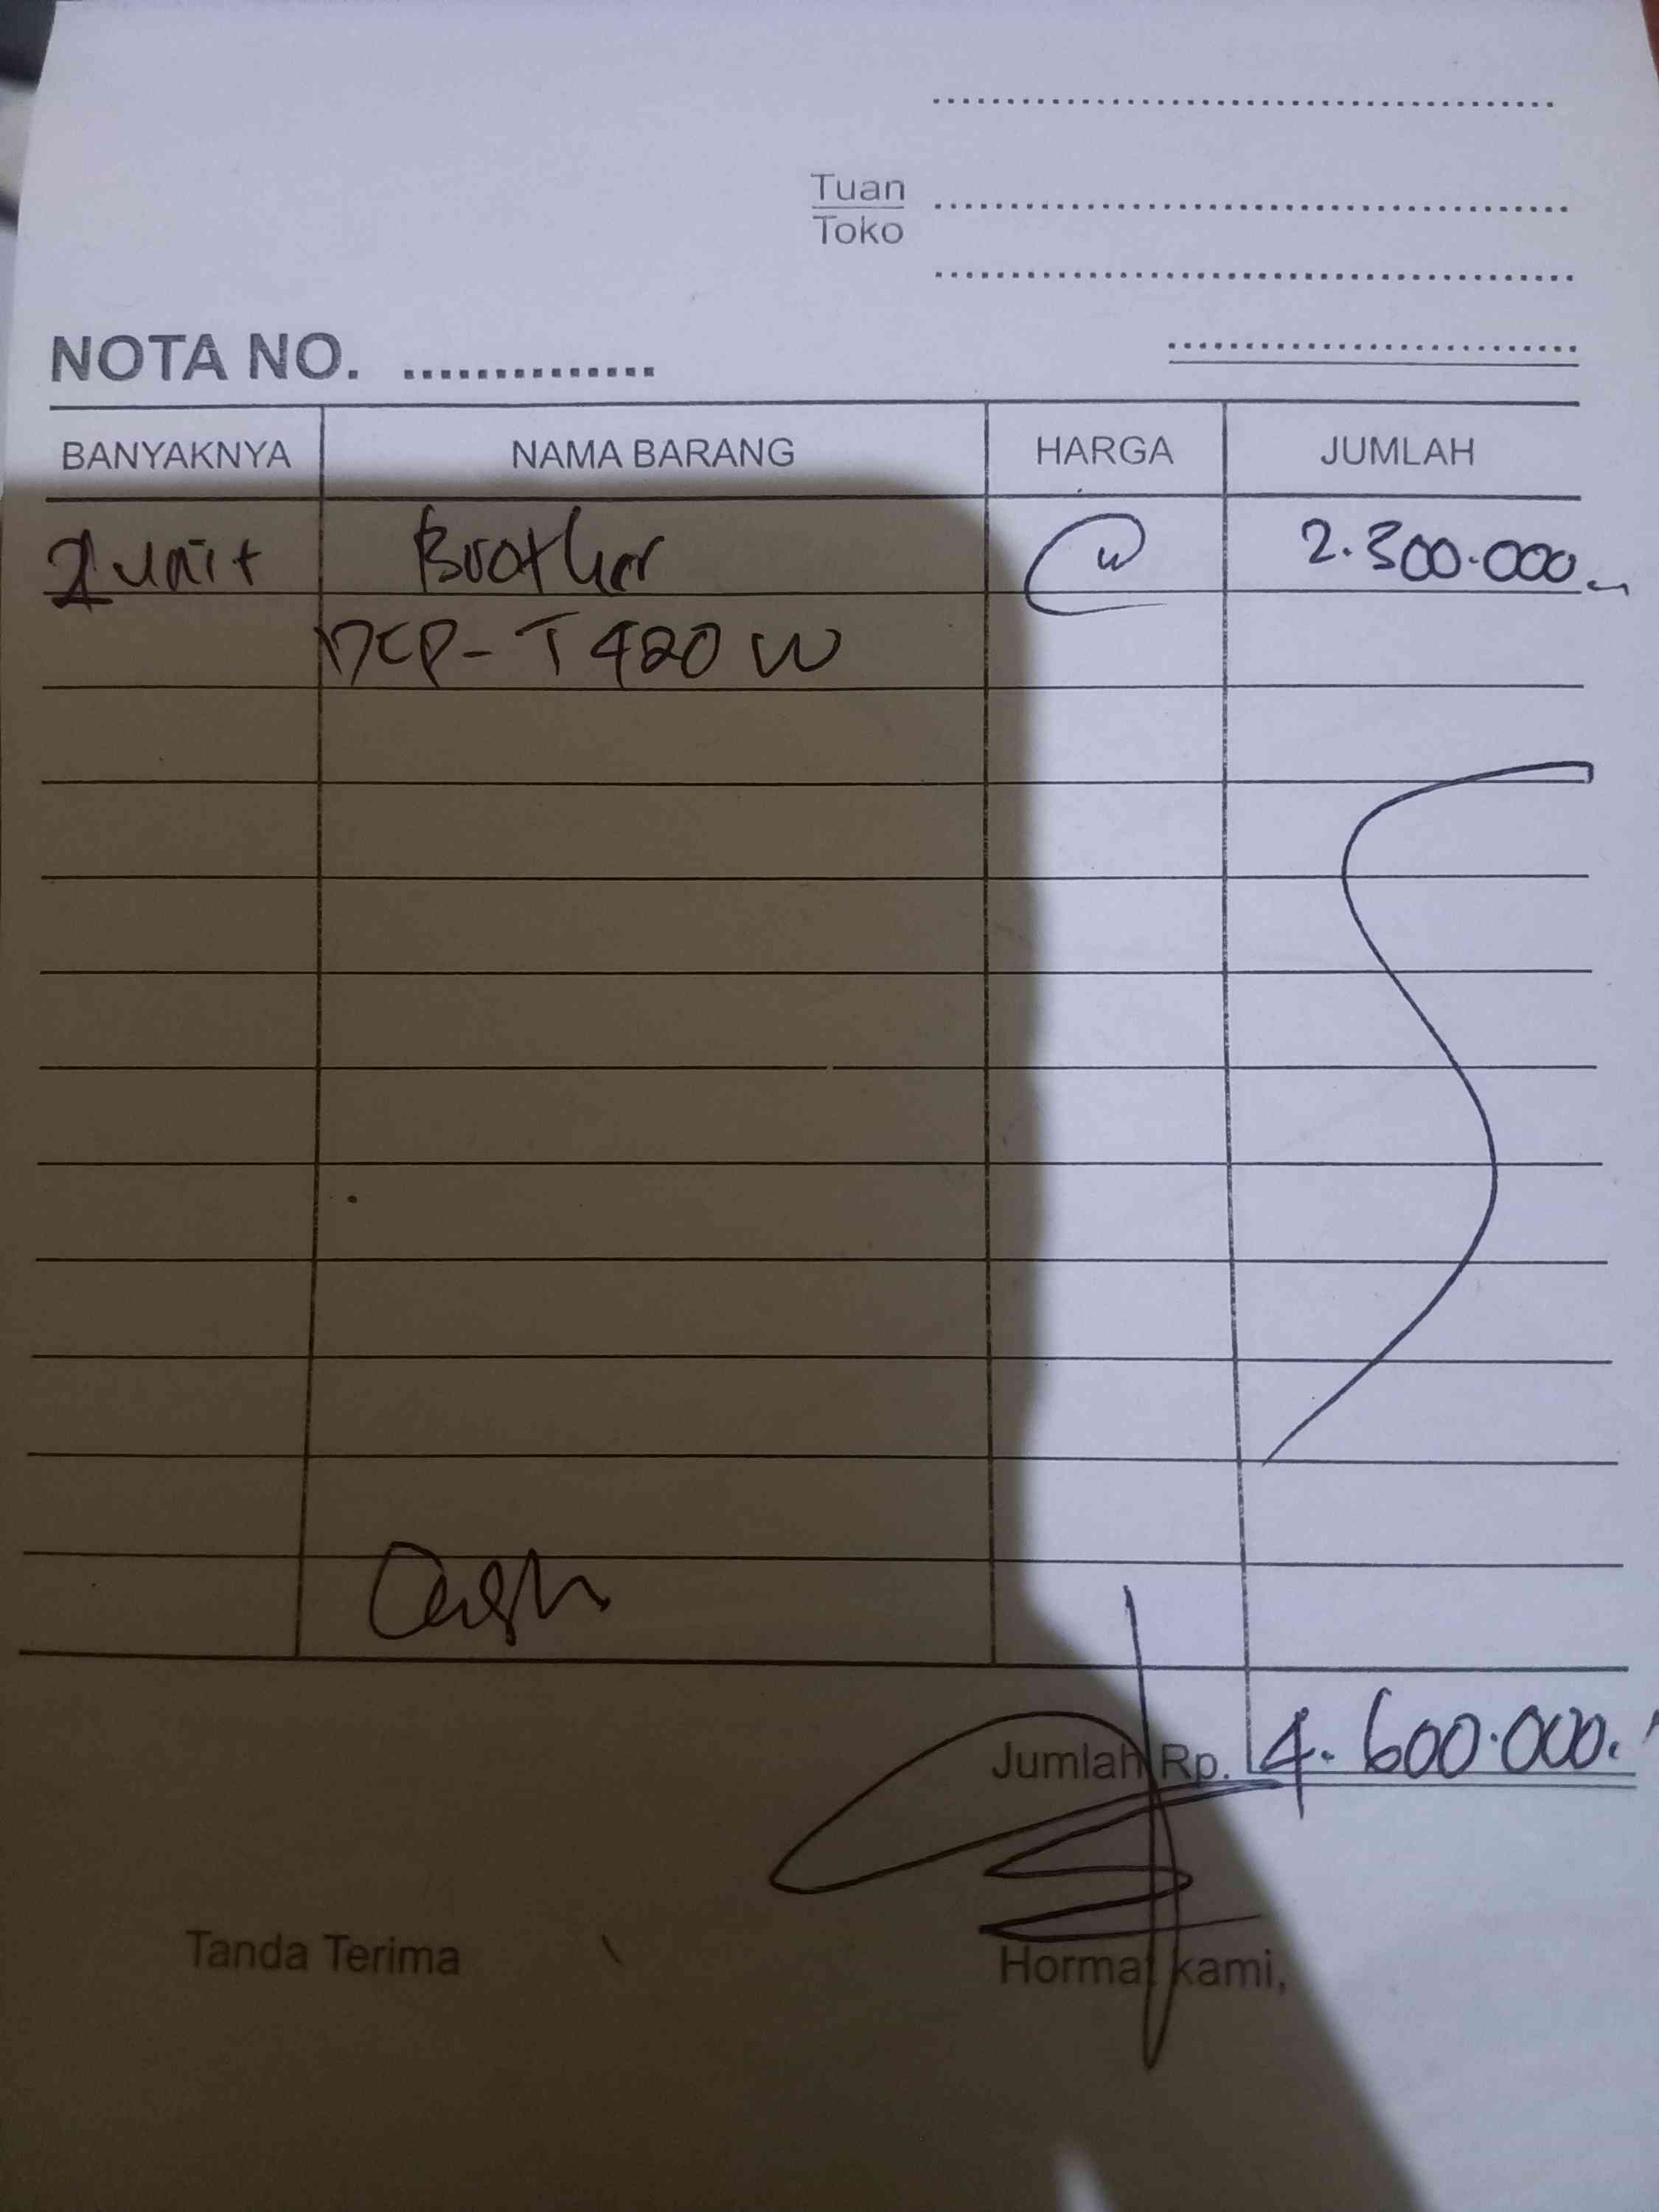 Tuan
Toko
NOTA NO. ..............
BANYAKNYA NAMA BARANG HARGA JUMLAH
2 unit Brother @ 2.300.000
DCP-T420W
Cash
Jumlah Rp. 4.600.000.
Tanda Terima Hormat kami,